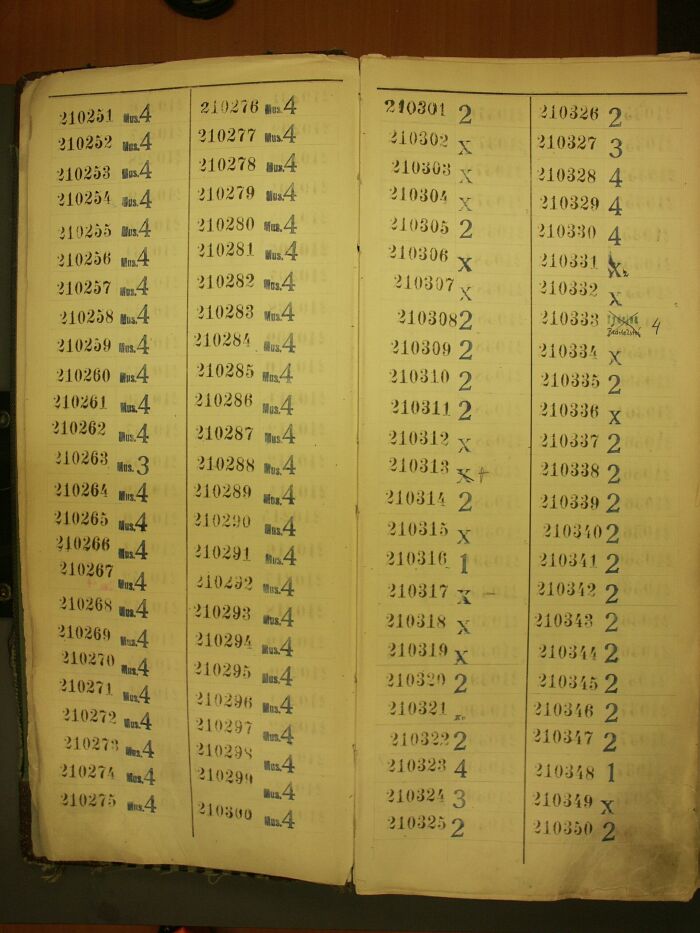 210251 Mus.4
210252 Mus.4
210253 Mus.4
210254 Mus.4
210255 Mus.4
210256 Mus.4
210257 Mus.4
210258 Mus.4
210259 Mus.4
210260 Mus.4
210261 Mus.4
210262 Mus.4
210263 Mus.3
210264 Mus.4
210265 Mus.4
210266 Mus.4
210267 Mus.4
210268 Mus.4
210269 Mus.4
210270 Mus.4
210271 Mus.4
210272 Mus.4
210273 Mus.4
210274 Mus.4
210275 Mus.4
210276 Mus.4
210277 Mus.4
210278 Mus.4
210279 Mus.4
210280 Mus.4
210281 Mus.4
210282 Mus.4
210283 Mus.4
210284 Mus.4
210285 Mus.4
210286 Mus.4
210287 Mus.4
210288 Mus.4
210289 Mus.4
210290 Mus.4
210291 Mus.4
210292 Mus.4
210293 Mus.4
210294 Mus.4
210295 Mus.4
210296 Mus.4
210297 Mus.4
210298 Mus.4
210299 Mus.4
210300 Mus.4
210301 2
210302 x
210303 x
210304 x
210305 2
210306 x
210307 x
210308 2
210309 2
210310 2
210311 2
210312 x
210313 x +
210314 2
210315 x
210316 1
210317 x -
210318 x
210319 x
210320 2
210321
210322 2
210323 4
210324 3
210325 2
210326 2
210327 3
210328 4
210329 4
210330 4
210331 x.
210332 x
210333 4
210334 x
210335 2
210336 x
210337 2
210338 2
210339 2
210340 2
210341 2
210342 2
210343 2
210344 2
210345 2
210346 2
210347 2
210348 1
210349 x
210350 2